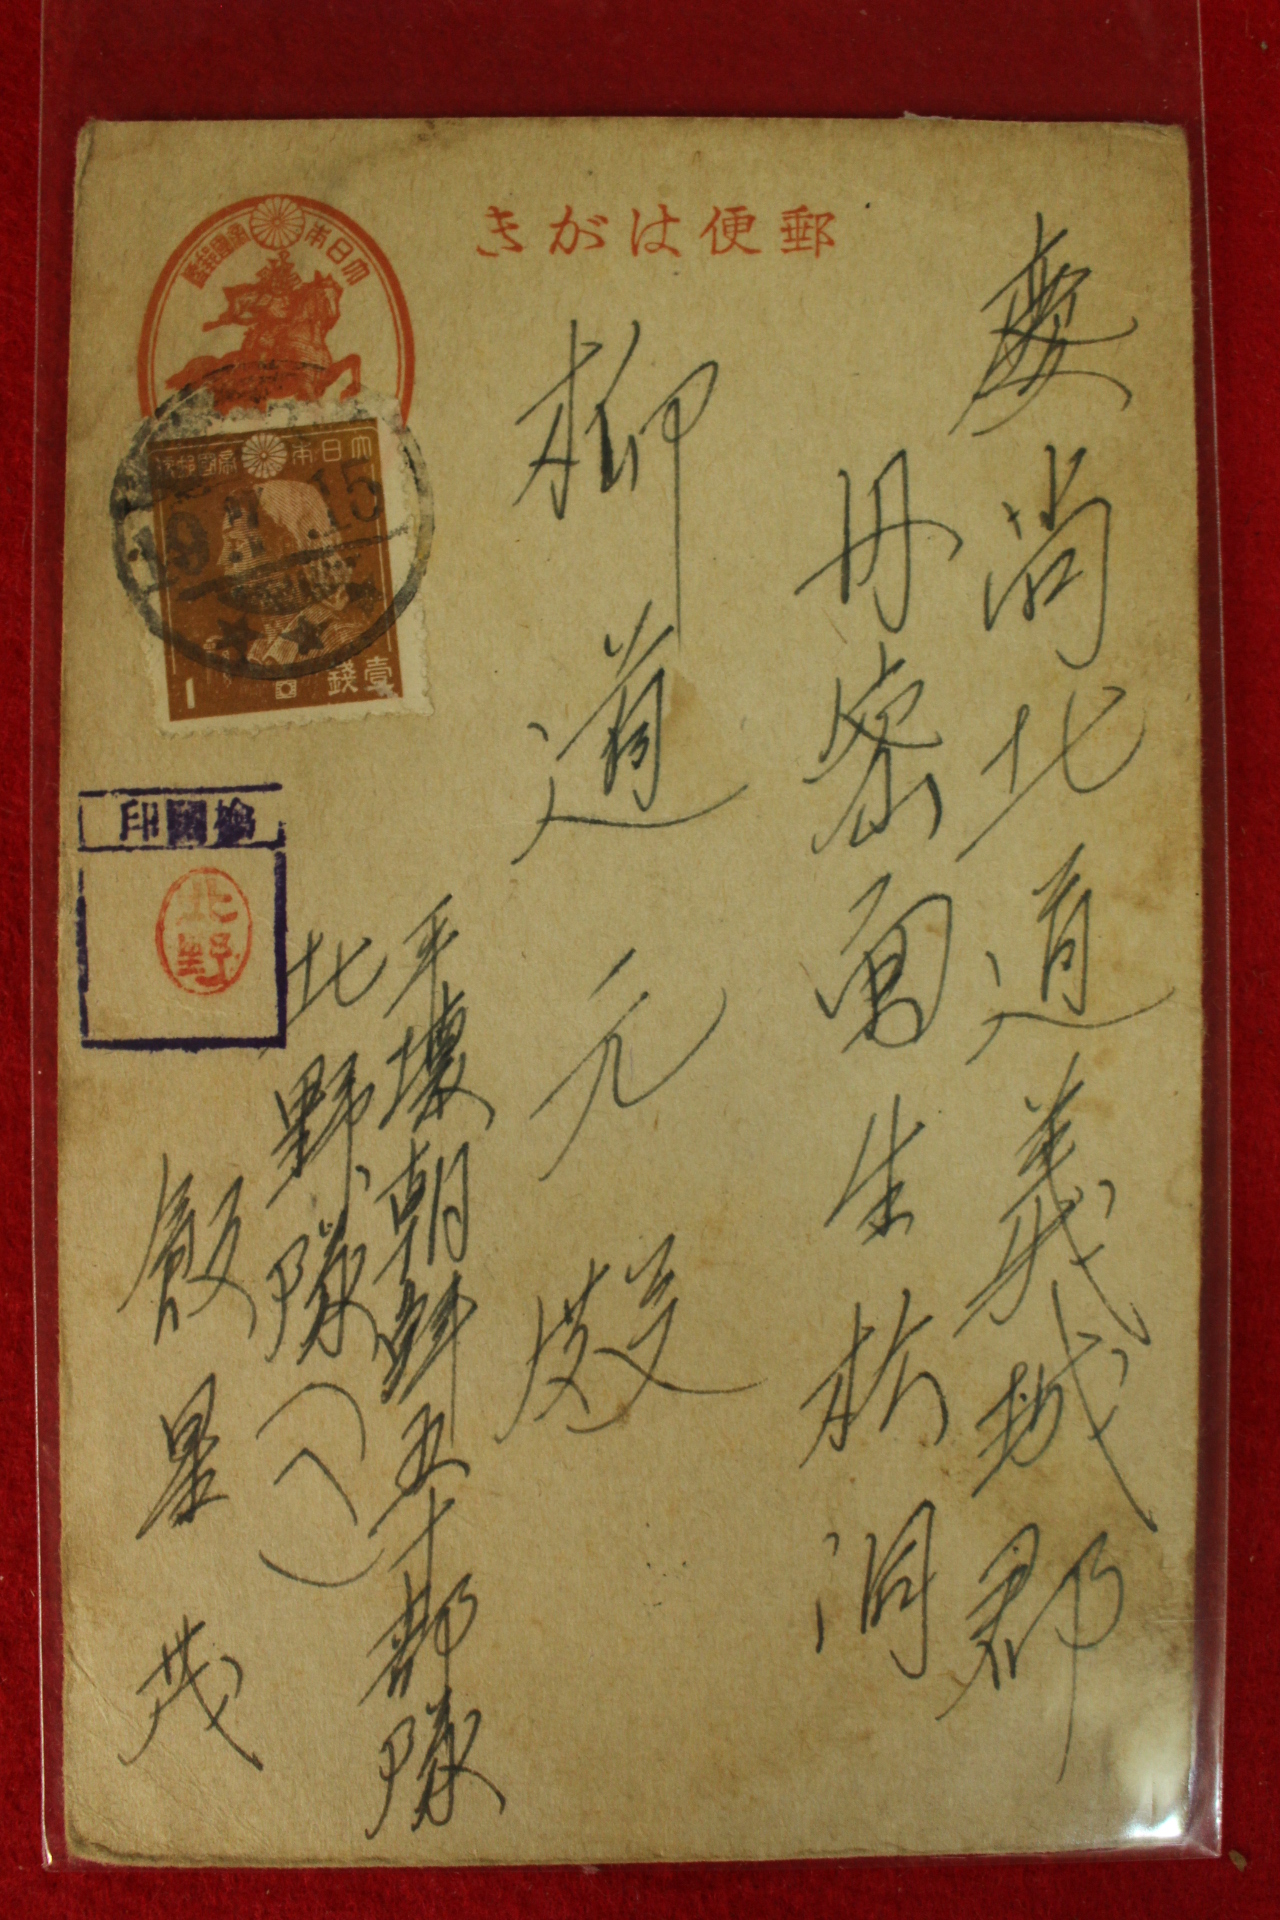 郵便はがき
大日本帝國郵便
大日本帝國郵便
19.7.15
壹錢
1
檢閲印
北野
慶尚北道義城郡
丹密面生松洞
柳道元殿
平壤朝鮮五十部隊
北野隊(へ)
飯星茂